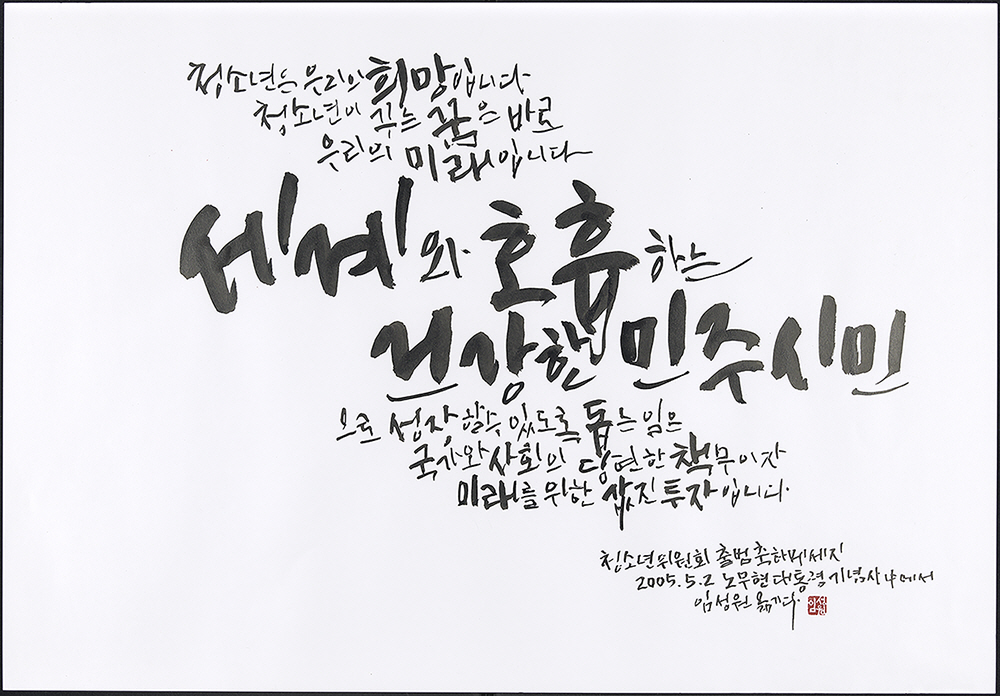 청소년은 우리의 희망입니다
청소년이 꾸는 꿈은 바로
우리의 미래입니다
세계와 호흡하는
건강한 민주시민
으로 성장할 수 있도록 돕는 일은
국가와 사회의 당면한 책무이자
미래를 위한 값진 투자입니다.
청소년위원회 출범 축하메세지
2005.5.2 노무현 대통령 기념사 中에서
임성원 옮기다.